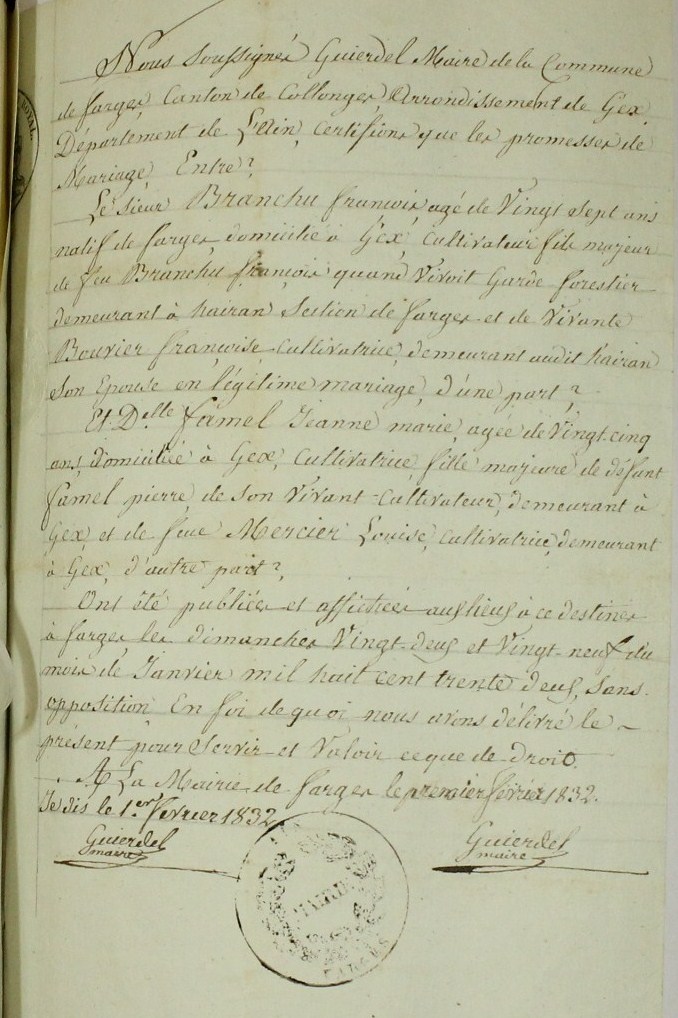 Nous soussignés Guierdel Maire de la Commune
de farges, Canton de Collonges Arrondissement de Gex,
Département de L'ain, Certifions que les promesses de
Mariage, Entre?
Le Sieur Branchu françois agé de Vingt Sept ans
natif de farges, domicilié à Gex, Cultivateur fils majeur
de feu Branchu françois quand Vivoit Garde forestier
demeurant à hairan Section de farges et de Vivante
Bouvier françoise Cultivatrice, demeurant audit hairan
Son Epouse en légitime mariage, d'une part?
Et D.elle famel Jeanne marie, agée de Vingt-cinq
ans, domiciliée à Gex, Cultivatrice, fille majeure de défunt
famel pierre, de Son Vivant Cultivateur, demeurant à
Gex et de feue Mercier Louise, Cultivatrice, demeurant
à Gex, d'autre part?,
Ont été publiées et affichées aux lieux à ce destinés
à farges les dimanches Vingt-deux et Vingt-neuf du
mois de Janvier mil huit cent trente deux, Sans
opposition En foi de quoi nous avons délivré le ~
présent pour Servir et Valoir ce que de droit.
A La Mairie de farges le premier février 1832.
Je dis le 1.er février 1832
Guierdel
maire
Guierdel
maire
MAIRIE
FARGES